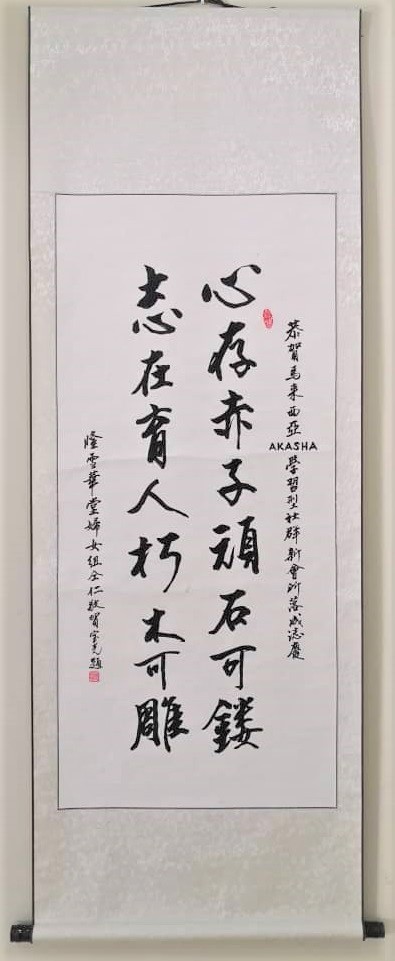 恭賀馬來西亞AKASHA學習型社群新會所落成誌慶
心存赤子頑石可鏤
志在育人朽木可雕
隆雪華堂婦女組仝仁敬賀 題